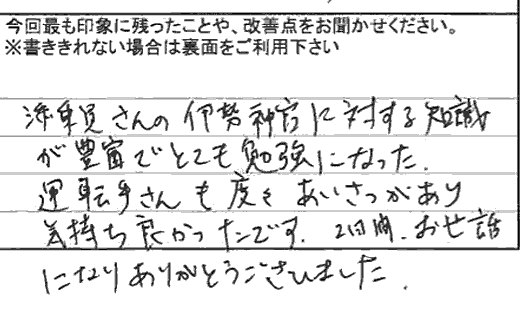 今回最も印象に残ったことや、改善点をお聞かせください。
※書ききれない場合は裏面をご利用下さい
添乗員さんの伊勢神宮に対する知識
が豊富でとても勉強になった.
運転手さんも度々あいさつがあり
気持ち良かったです. 2日間、お世話
になりありがとうございました.